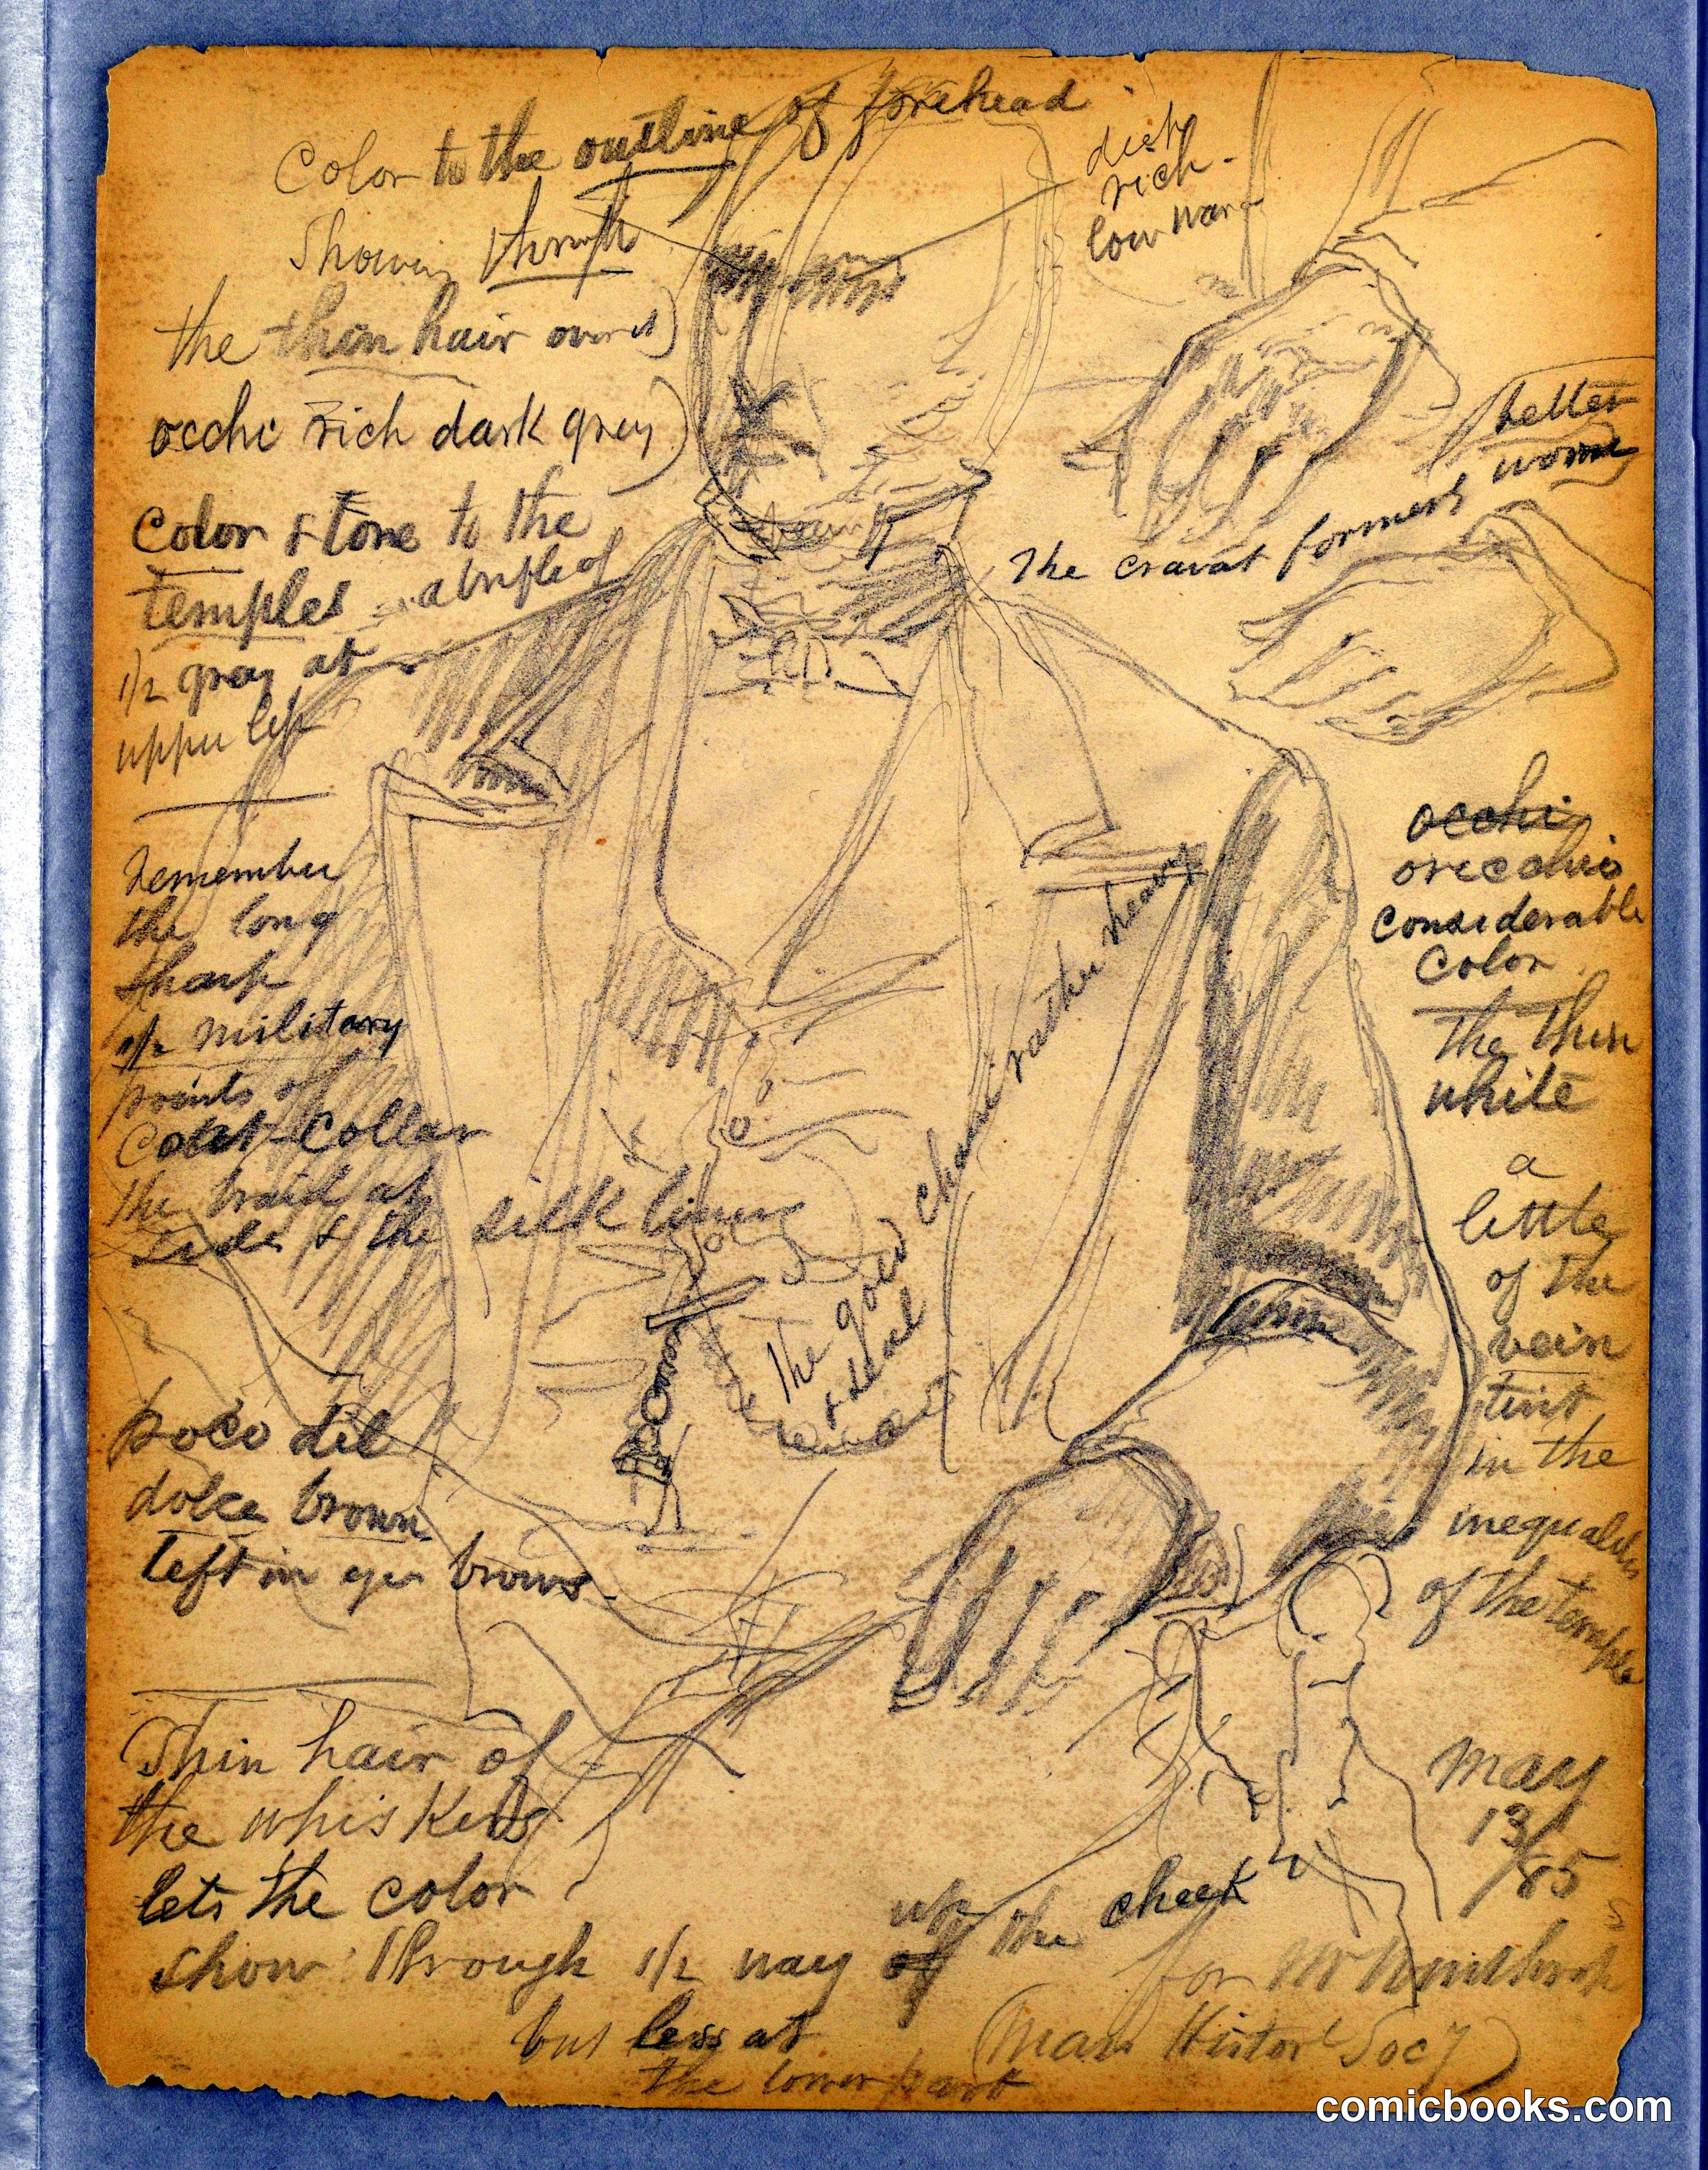 Color to the outline of forehead
Showing through
the thin hair over it)
occhi rich dark grey)
Color & tone to the
temples a trifle of
1/2 gray at
upper left
remember
the long
sharp
1/2 military
points of
Coat-Collar
the braid at
side & the silk lining
poco del
dolce brown
left in eye brows
Thin hair of
the whiskers
lets the color
show through 1/2 way up the cheek
but less at
the lower part
rich
low
better
The cravat formerly worn
occhi
orecchio
considerable
Color
The thin
white
a
little
of the
vein
tint
in the
inequalities
of the temple
The gold chain rather heavy
& seal
May
13/85
for Mr Winthrop
(Mass Histor'l Soc'y)
comicbooks.com